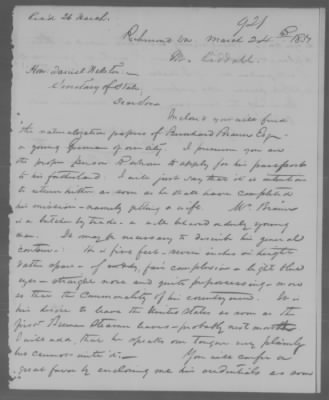 Rec'd 26 March.
921
Richmond Va March 24th 1852
Mr. Riddall.
Hon. Daniel Webster —
Secretary of State,
Dear Sir
Enclosed you will find
the naturalization papers of Esqr
a young German of our city. I presume you are
the proper person to whom to apply for his passport
to his fatherland. I will just say that it is his intention
to return hither as soon as he shall have completed
his mission — namely getting a wife. Mr.
is a butcher by trade — a well behaved orderly young
man. It may be necessary to describe his general
contour: He is five feet — seven inches in height
rather spare — of complexion a light blue
eyes — straight nose and quite prepossessing — more
so than the Commonality of his countrymen. It is
his desire to leave the United States as soon as the
first Bremen Steamer leaves — probably next month
I will add, that he speaks our tongue very plainly
You will confer a
great favor by enclosing me his credentials as soon